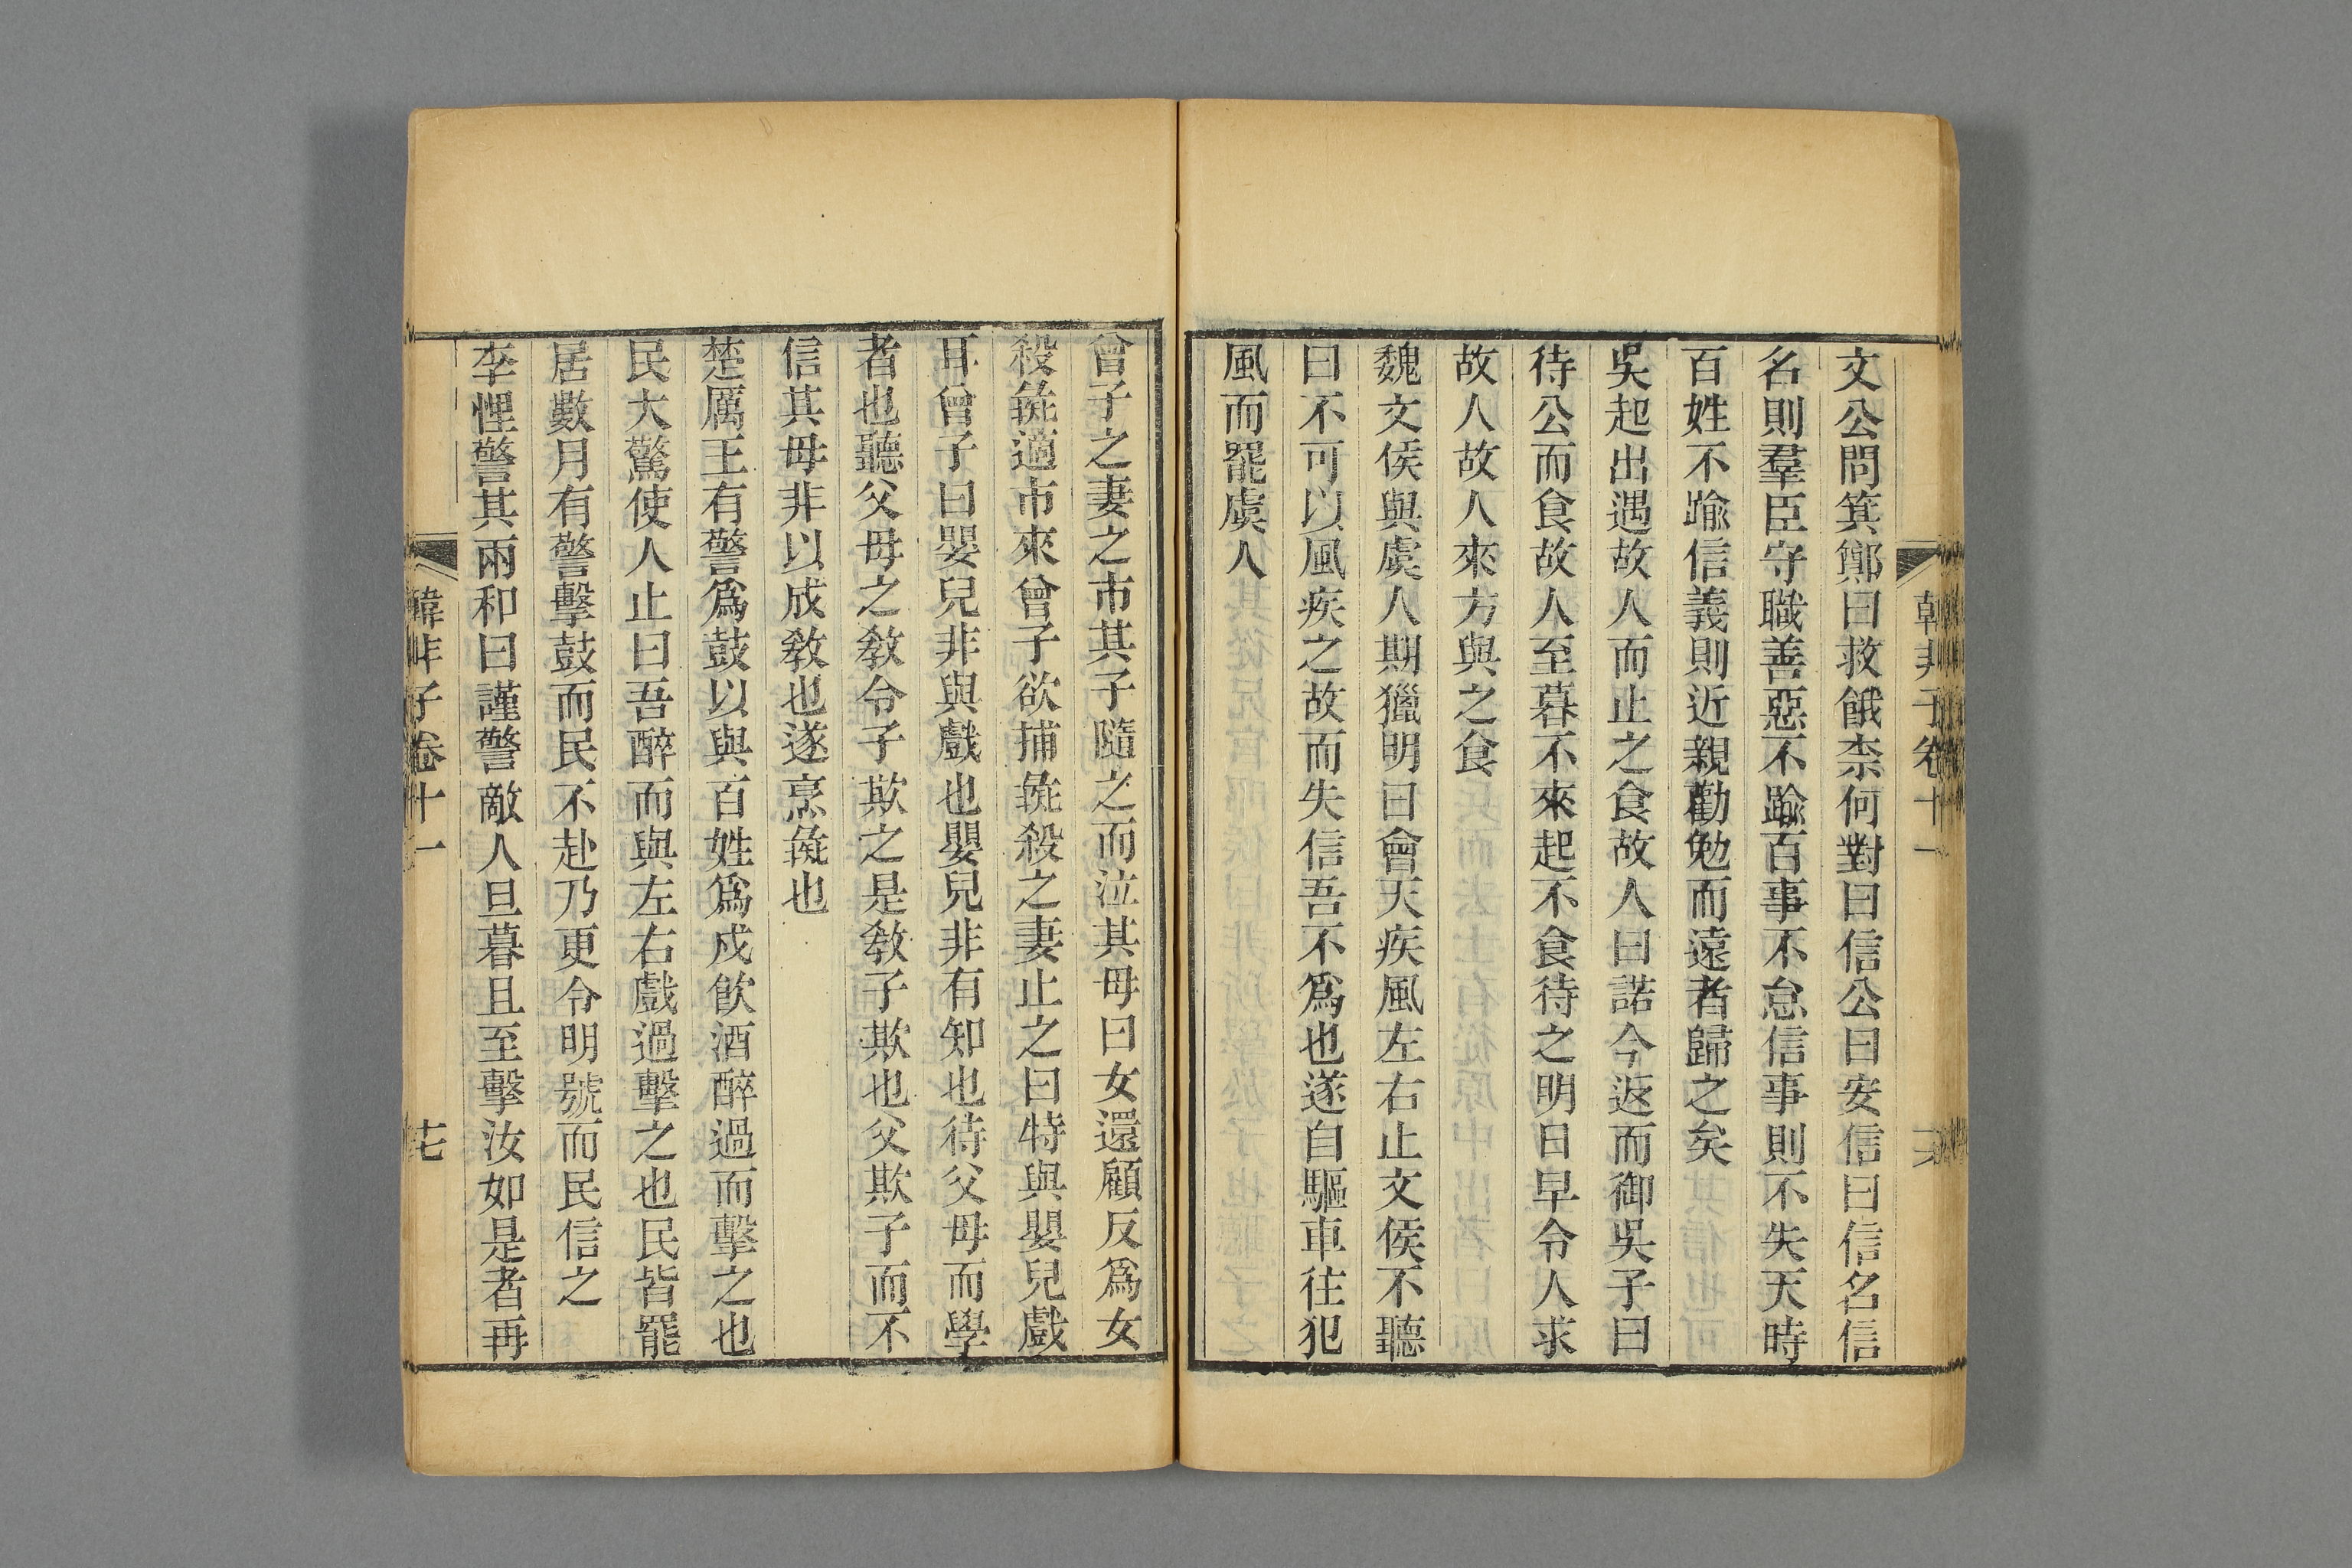 韓非子卷十一
文公問箕鄭曰救餓柰何對曰信公曰安信曰信名信
名則羣臣守職善惡不踰百事不怠信事則不失天時
百姓不踰信義則近親勸勉而遠者歸之矣
吳起出遇故人而止之食故人曰諾今返而御吳子曰
待公而食故人至暮不來起不食待之明日早令人求
故人故人來方與之食
魏文侯與虞人期獵明日會天疾風左右止文侯不聽
曰不可以風疾之故而失信吾不爲也遂自驅車往犯
風而罷虞人
曾子之妻之市其子隨之而泣其母曰女還顧反爲女
殺彘適市來曾子欲捕彘殺之妻止之曰特與嬰兒戲
耳曾子曰嬰兒非與戲也嬰兒非有知也待父母而學
者也聽父母之教令子欺之是教子欺也父欺子而不
信其母非以成教也遂烹彘也
楚厲王有警爲鼓以與百姓爲戍飲酒醉過而擊之也
民大驚使人止曰吾醉而與左右戲過擊之也民皆罷
居數月有警擊鼓而民不赴乃更令明號而民信之
李悝警其兩和曰謹警敵人旦暮且至擊汝如是者再
韓非子卷十一
十七